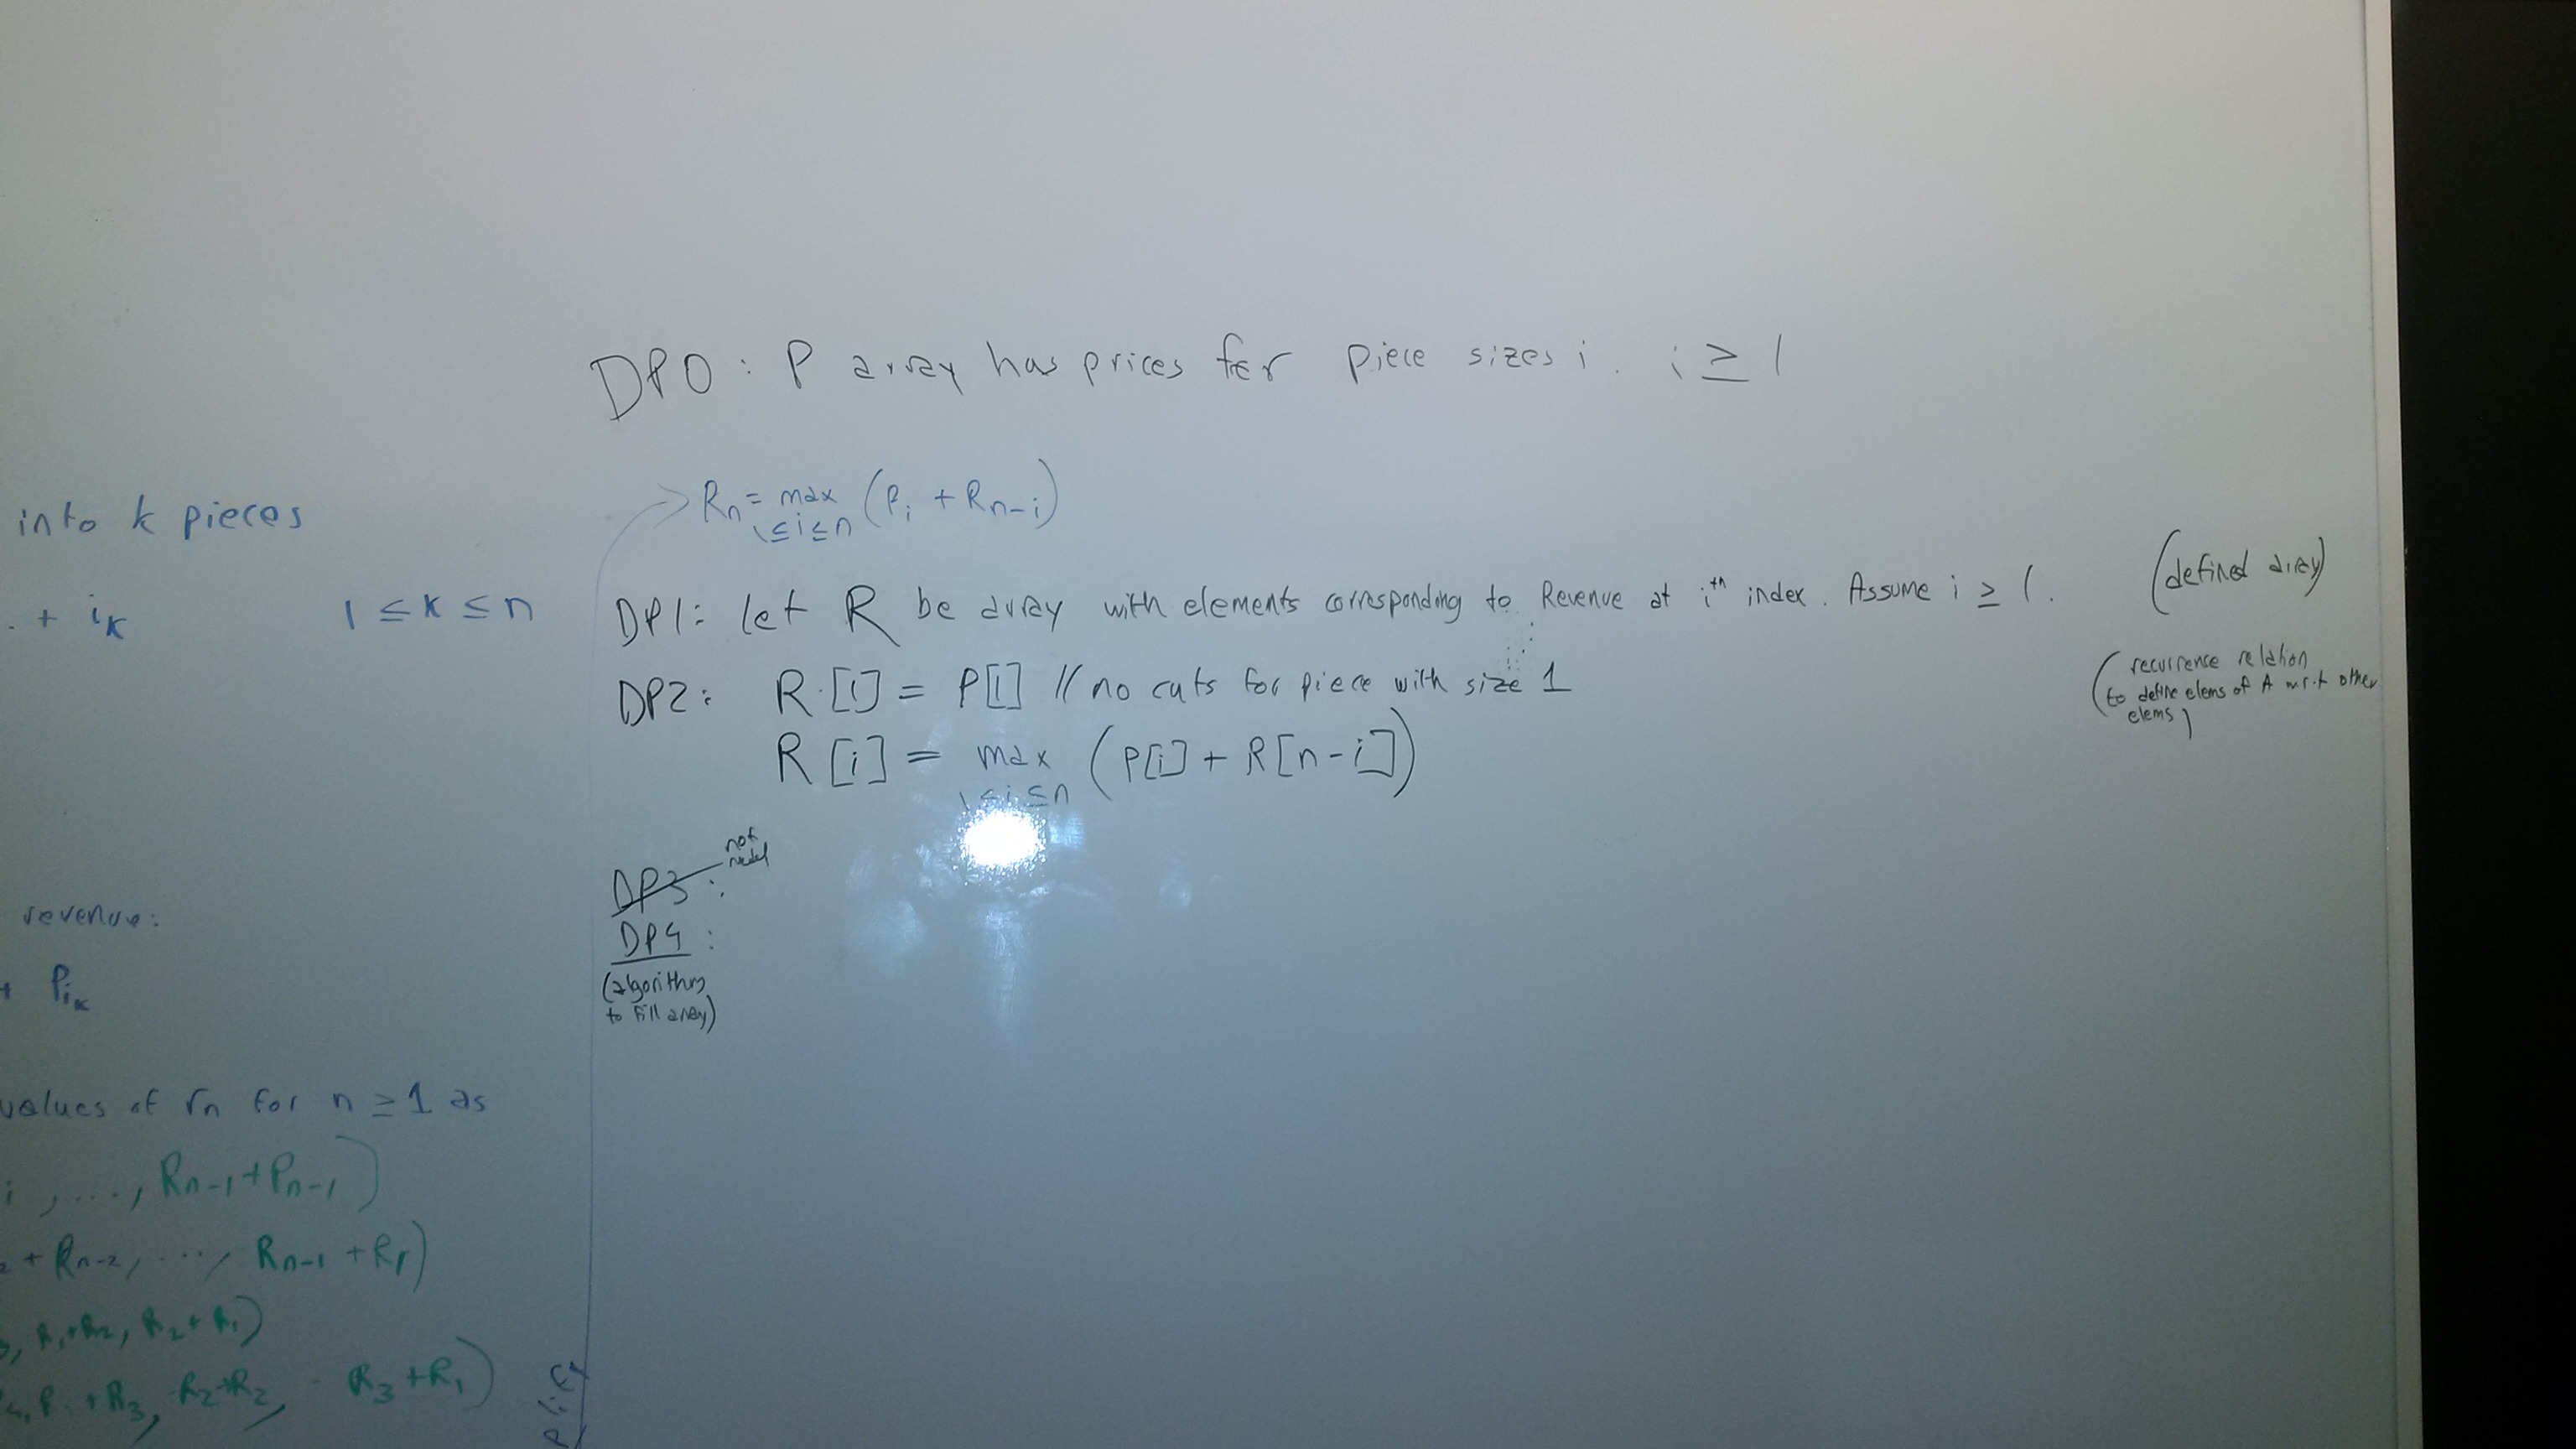 into k pieces
. + iₖ 1 ≤ k ≤ n
revenue:
+ Pᵢₖ
values of rn for n ≥ 1 as
i , ..., Rn-1 + Pn-1)
2 + Rn-2, ..., Rn-1 + R1)
R1+R2, R2+R1)
+ R3, R2+R2, R3+R1)
DP0: P array has prices for piece sizes i. i ≥ 1
Rn = max (Pi + Rn-i)
1≤i≤n
DP1: let R be array with elements corresponding to Revenue at iᵗʰ index. Assume i ≥ 1. (defined array)
DP2: R[1] = P[1] // no cuts for piece with size 1
R[i] = max (P[i] + R[n-i])
1≤i≤n
(recurrence relation
to define elems of A w.r.t other
elems)
DP3:
not
DP4:
(algorithm
to fill array)